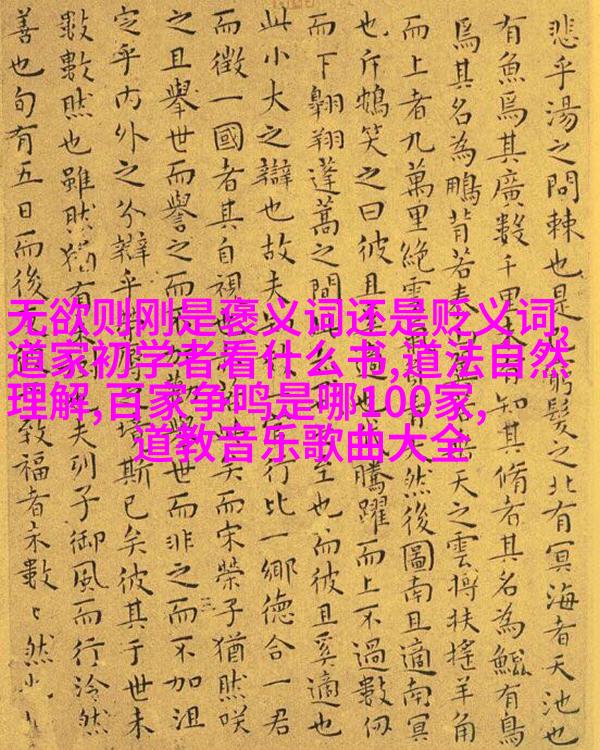 悲乎湯之問棘也是也窮髮之北有冥海者天池也
有魚焉其廣數千里未有知其脩者其名為鯤有鳥
焉其名為鵬背若泰山天之雲摶扶搖羊角
而上者九萬里絕雲氣然後圖南且適南冥
也斥鴳笑之曰彼且奚適也我騰躍而上不過數仞
而下翱翔蓬蒿之間此至也而彼且奚適也
此小大之辯也故夫一官行比一鄉德合一君
而徵一國者其自視也矣而宋榮子猶然咲
之且舉世而譽之而不加勸舉世而非之而不加沮
定乎內外之分辯乎榮辱之境斯已矣彼其于世未
數數然也雖然猶有未也夫列子御風而行泠然
善也旬有五日而後致福者未數々然
无欲则刚是褒义词还是贬义词,
道家初学者看什么书,道法自然
理解,百家争鸣是哪100家,
道教音乐歌曲大全